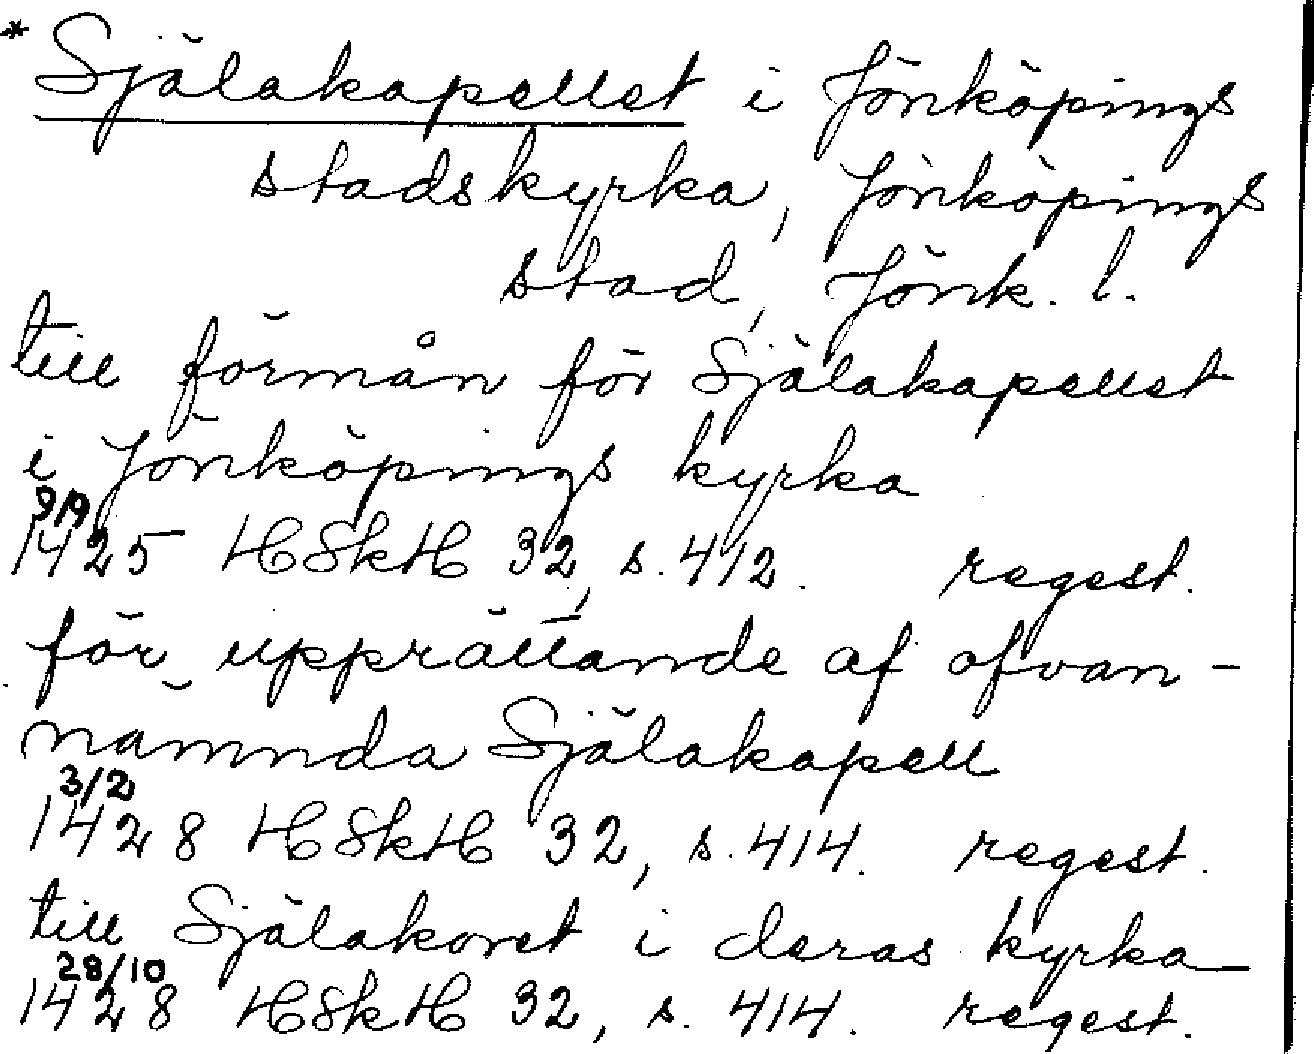 * Själakapellet i Jönköpings
stadskyrka, Jönköpings
stad, Jönk. l.
till förmån för Själakapellet
i Jönköpings kyrka
9/9
1425 HSkH 32, s. 412. regest.
för upprättande af ofvan-
nämnda Själakapell
3/2
1428 HSkH 32, s. 414. regest.
till Själakoret i deras kyrka
28/10
1428 HSkH 32, s. 414. regest.